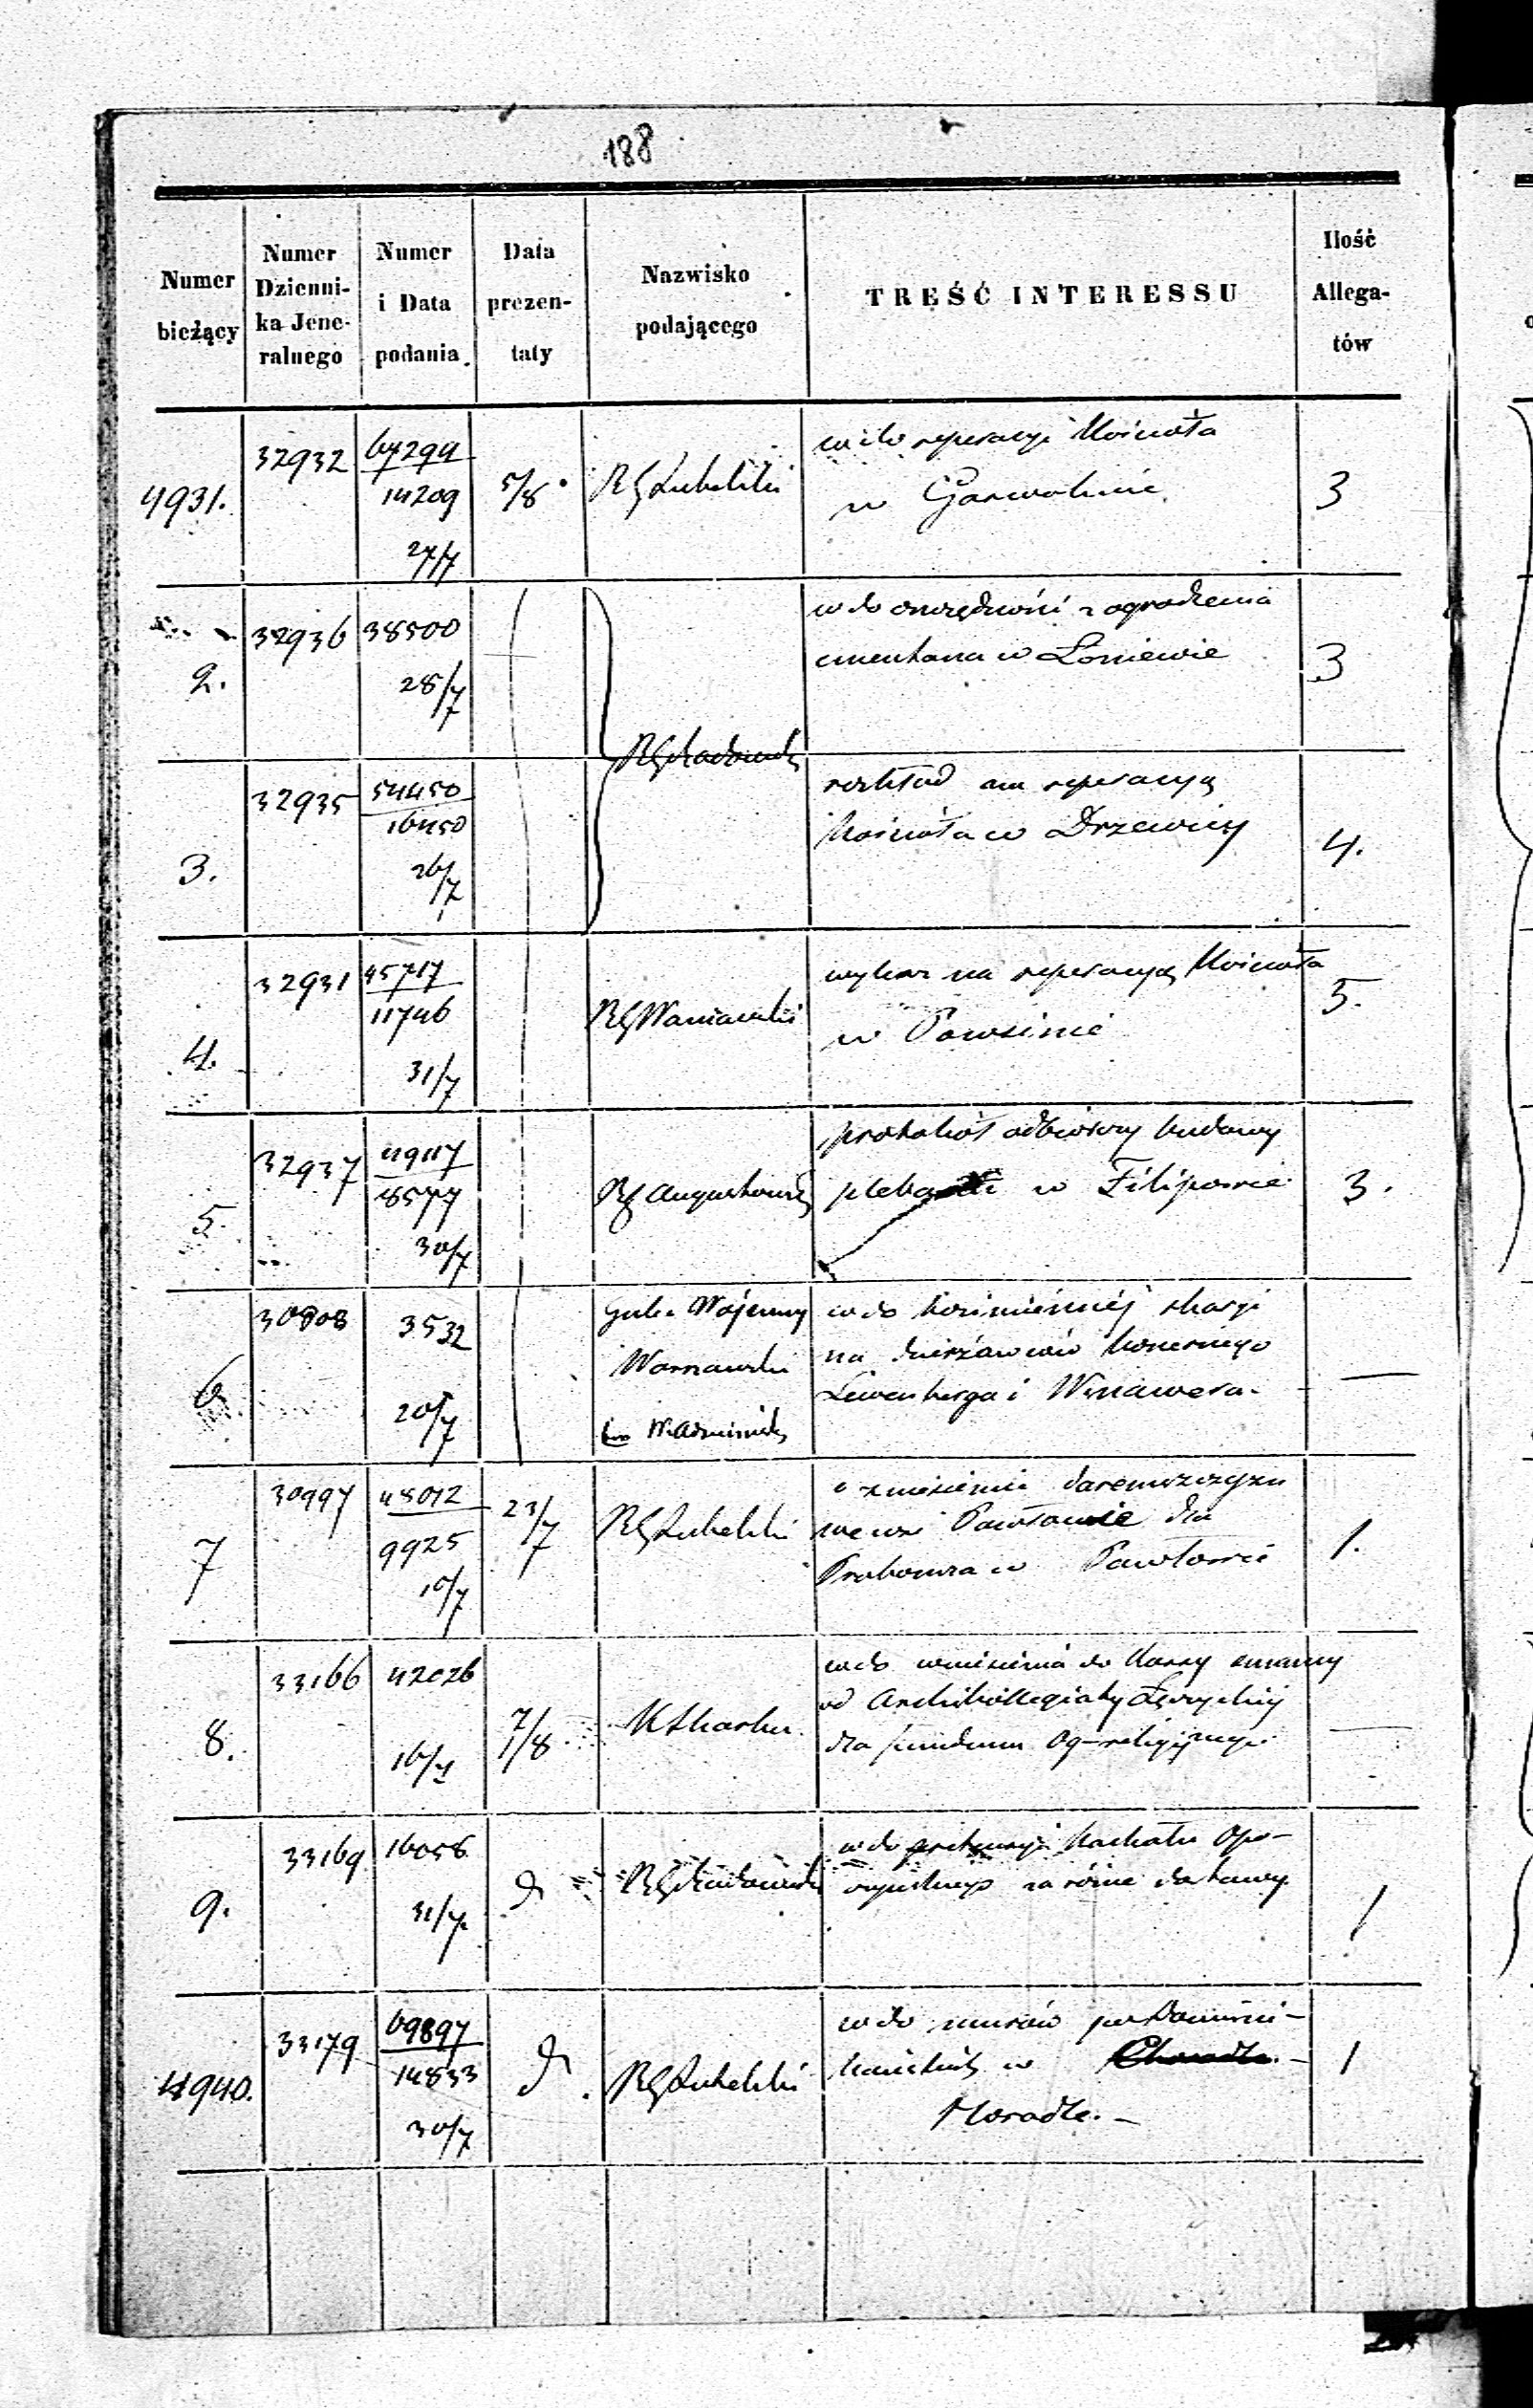 188
Numer bieżący
Numer Dzienni-ka Jene-ralnego
Numer i Data podania
Data prezen-taty
Nazwisko podającego
TREŚĆ INTERESSU
Ilość Allega-tów
4931.
32932
67299
14209
27/7
5/8
RG Lubelski
w do reperacyi Kościoła
w Garwolinie
3
2.
32936
38500
28/7
RG Radomski
w do oszczędności z ogrodzenia
cmentarza w Łoniewie
3
3.
32935
54450
16450
26/7
rozkład na reperacyą
Kościoła w Drzewicy
4.
4.
32931
45717
11746
31/7
RG Warszawski
wykaz na reperacyą Kościoła
w Powsinie
5.
5.
32937
49117
18577
30/7
RG Augustowski
protokół odbiorczy budowy
w Filipowie
3.
6.
30808
3532
20/7
Gube Wojenny
Warszawski
w do bezimiennéj skargi
na dzierżawców koszernego
Lewenberga i Winawera.
—
7
30997
48012
9925
10/7
23/7
RG Lubelski
o zniesienie daremszczyzn
we wsi Pawłowie dla
Proboszcza w Pawłowie
1.
8.
33166
42026
16/7
7/8
K Skarbu
w do wniesienia do Kassy summy
od Archikollegiaty Łęczyckiej
dla funduszu Og-religijnego
—
9.
33169
16058
31/7
d
RG Radomski
w do pretensyi Kachału Opo-
czyńskiego za różne dostawy
1
4940.
33179
69897
14833
30/7
d
RG Lubelski
w do murów po Domini-
kańskich w
Horodle. —
1